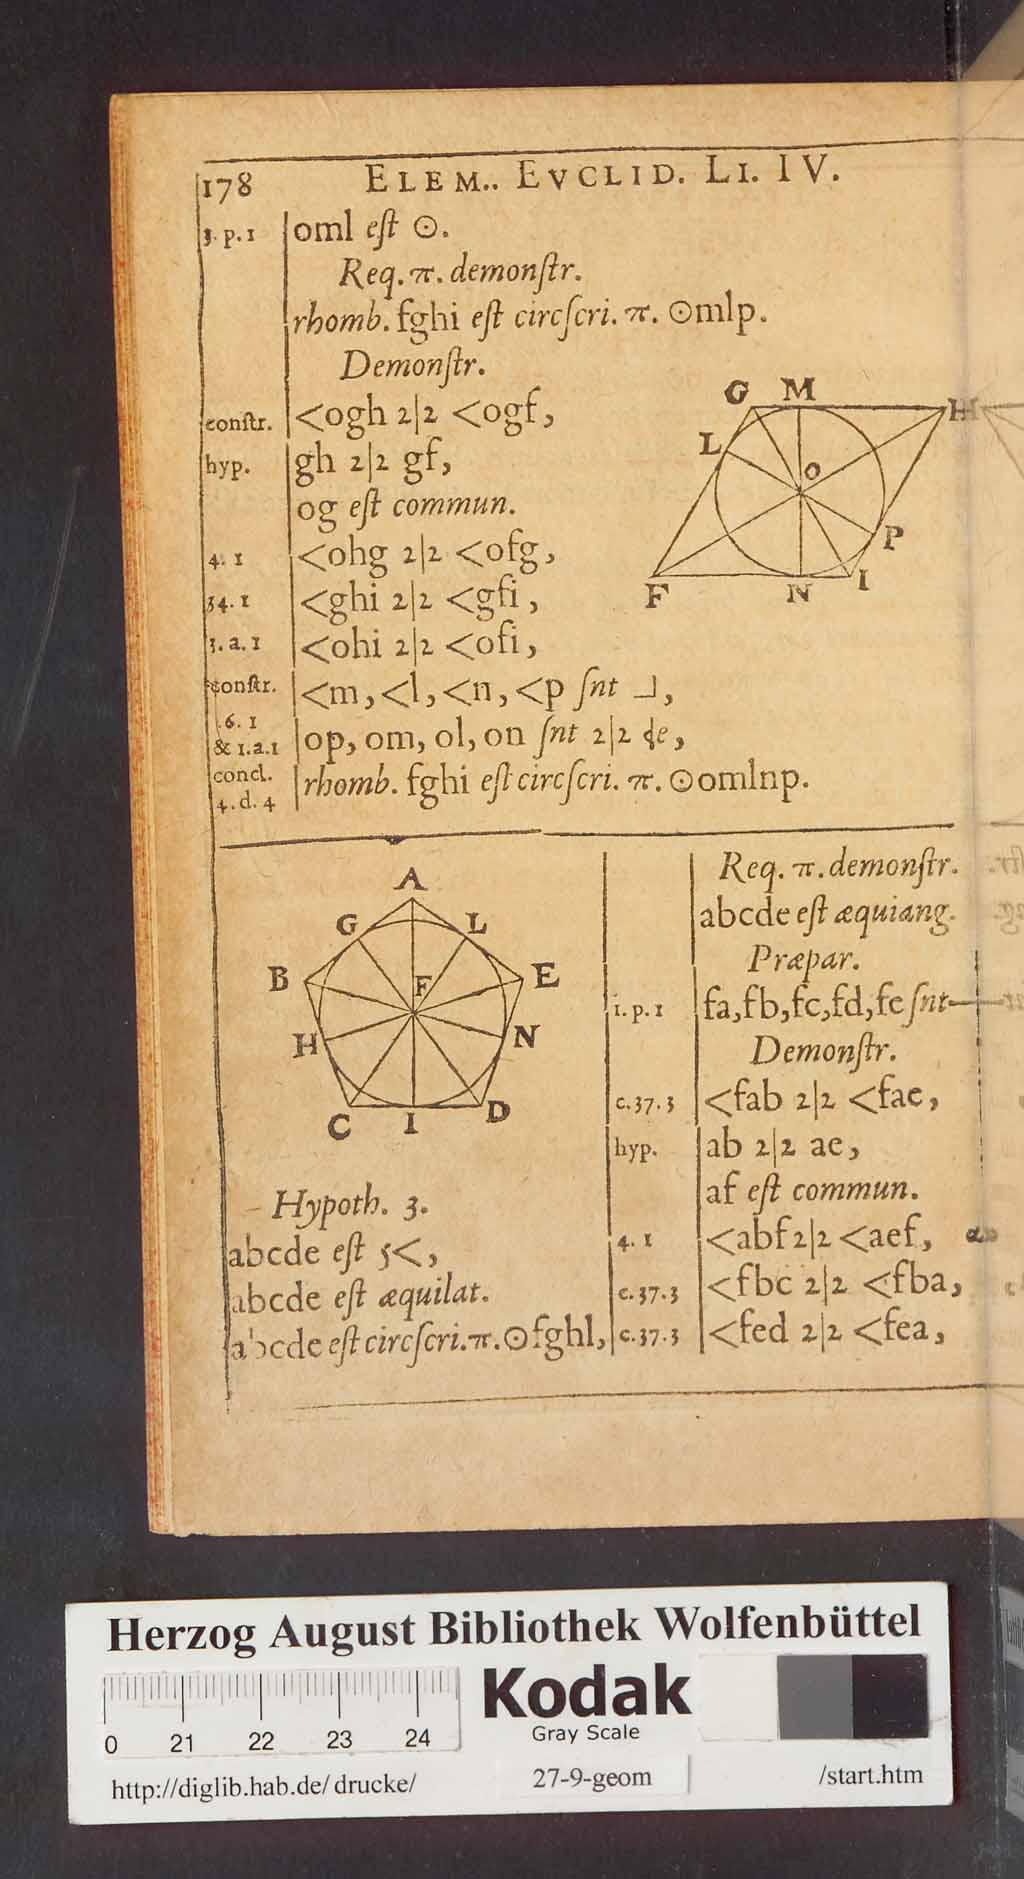 178 ELEM.. EVCLID. LI. IV.
3. p. 1 oml eſt ⊙.
Req. π. demonſtr.
rhomb. fghi eſt circſcri. π. ⊙mlp.
Demonſtr.
conſtr. <ogh 2|2 <ogf,
hyp. gh 2|2 gf,
og eſt commun.
4. 1 <ohg 2|2 <ofg,
34. 1 <ghi 2|2 <gfi,
3. a. 1 <ohi 2|2 <ofi,
conſtr. <m, <l, <n, <p ſnt ⅃,
.6. 1
& 1.a.1 op, om, ol, on ſnt 2|2 de,
concl.
4. d. 4 rhomb. fghi eſt circſcri. π. ⊙omlnp.
G M H
L O
P
F N I
A
G L
B F E
H N
C I D
Hypoth. 3.
abcde eſt 5<,
abcde eſt æquilat.
abcde eſt circſcri. π. ⊙fghl,
Req. π. demonſtr.
abcde eſt æquiang.
Præpar.
1. p. 1 fa, fb, fc, fd, fe ſnt —
Demonſtr.
c. 37. 3 <fab 2|2 <fae,
hyp. ab 2|2 ae,
af eſt commun.
4. 1 <abf 2|2 <aef,
c. 37. 3 <fbc 2|2 <fba,
c. 37. 3 <fed 2|2 <fea,
Herzog August Bibliothek Wolfenbüttel
0 21 22 23 24
Kodak
Gray Scale
http://diglib.hab.de/drucke/ 27-9-geom /start.htm